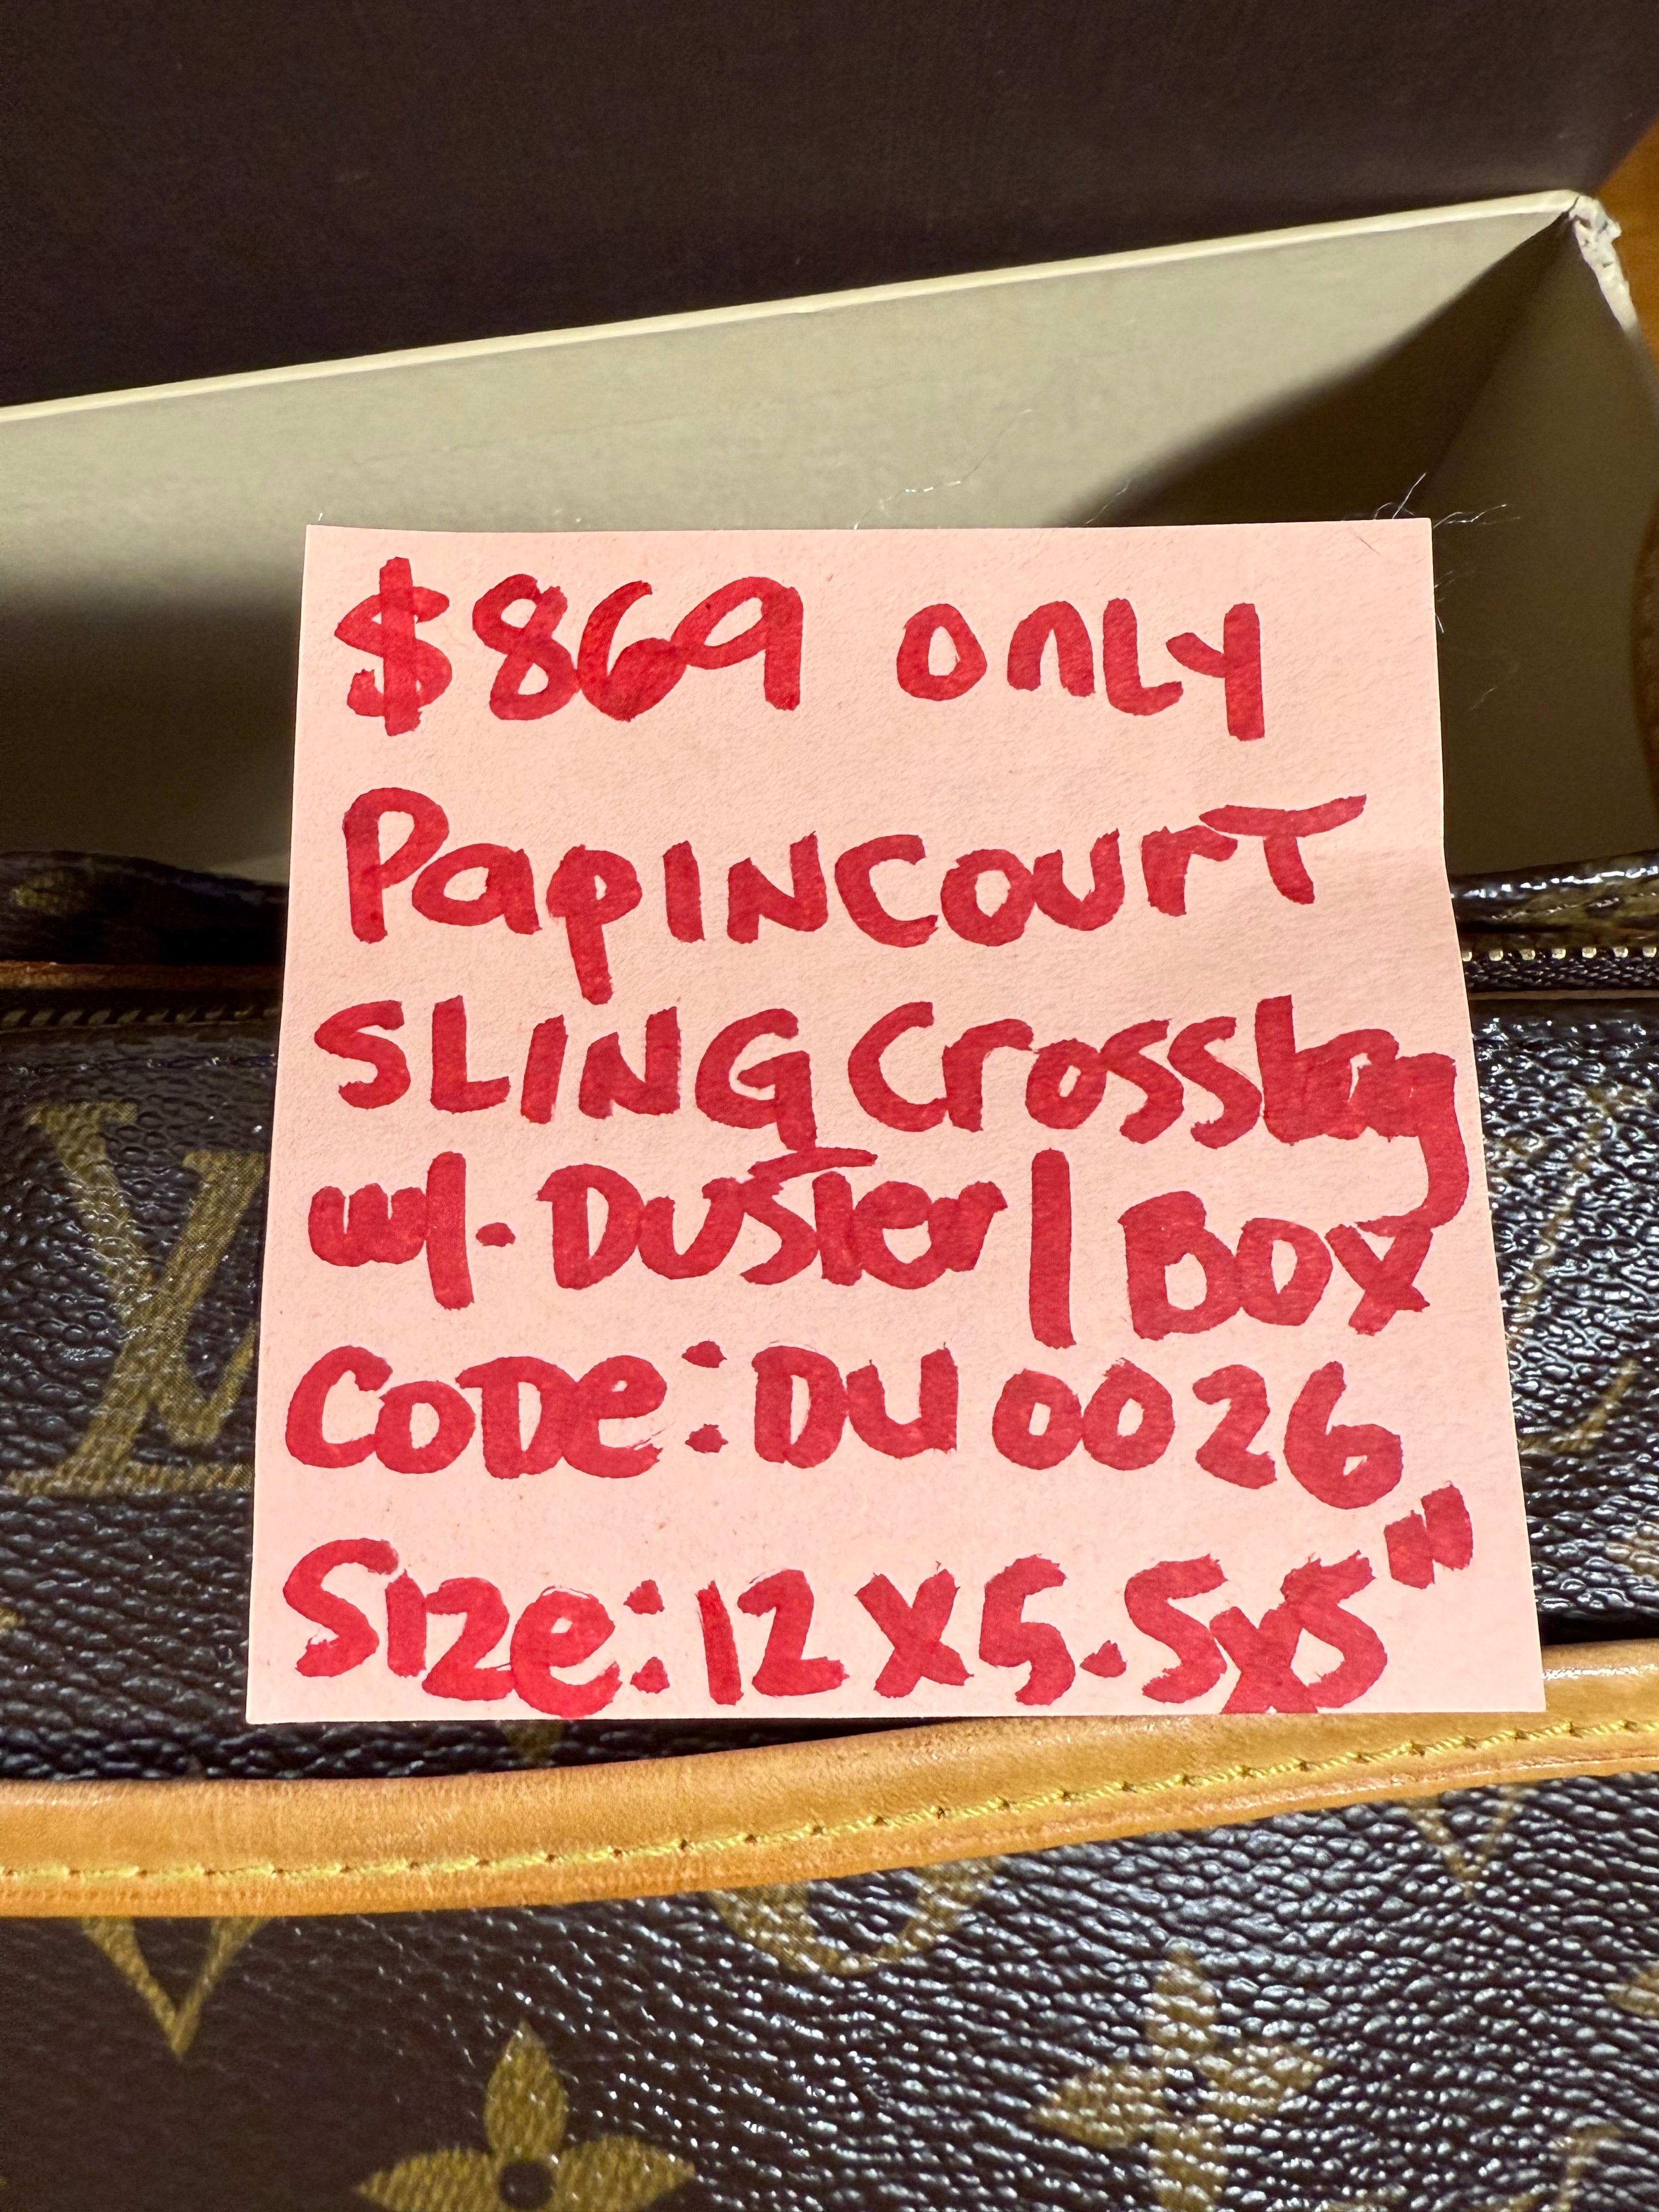 $869 only
PapINCOURT
SLING Crossbag
w/. Duster | Box
CODe: DU0026
Size: 12 x 5.5x5"
LV